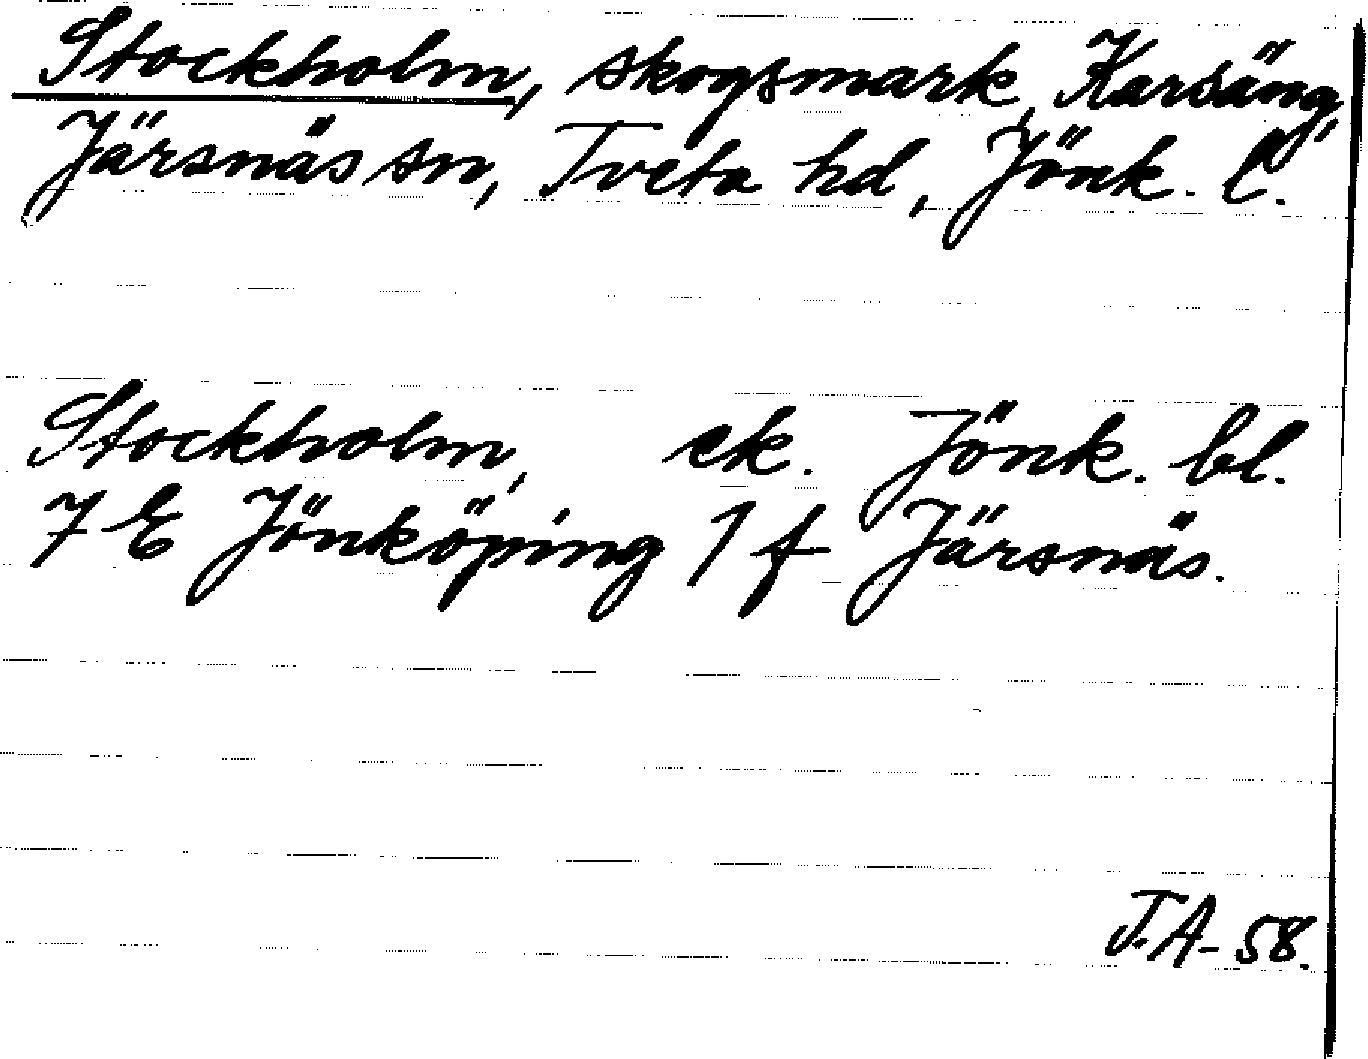 Stockholm, skogsmark, Karsäng,
Järsnäs sn, Tveta hd, Jönk. l.
Stockholm, ek. Jönk. bl.
7 E Jönköping 1 f Järsnäs.
J.A-58.